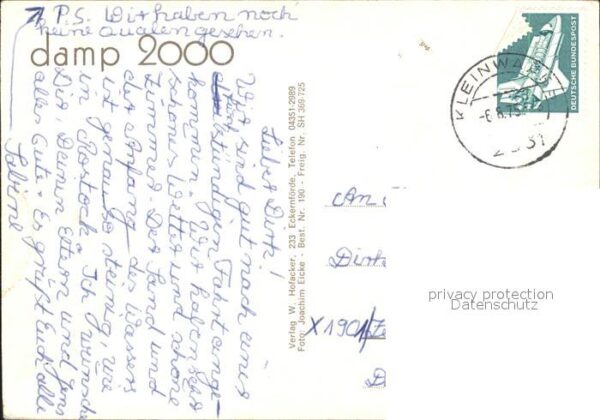 P.S. Wir haben noch
keine Qualen gesehen.
damp 2000
Lieber Dirk!
Wir sind gut nach einer
stündigen Fahrt ange-
kommen. Wir haben sehr
schönes Wetter und schöne
Zimmer. Der Sand und
der Anfang des Wassers
ist genau so steinig, wie
in Rostock. Ich wünsche
Dir, Deinen Eltern und Jens
alles Gute. Es grüßt Euch alle
Sabine
Verlag W. Hofacker, 233 Eckernförde, Telefon 04351-2989
Foto: Joachim Eicke - Best. Nr. 190 - Freig. Nr. SH 369-725
DEUTSCHE BUNDESPOST
KLEINWA
-6.8.75
2331
An
Dirk
X1901
D
privacy protection
Datenschutz